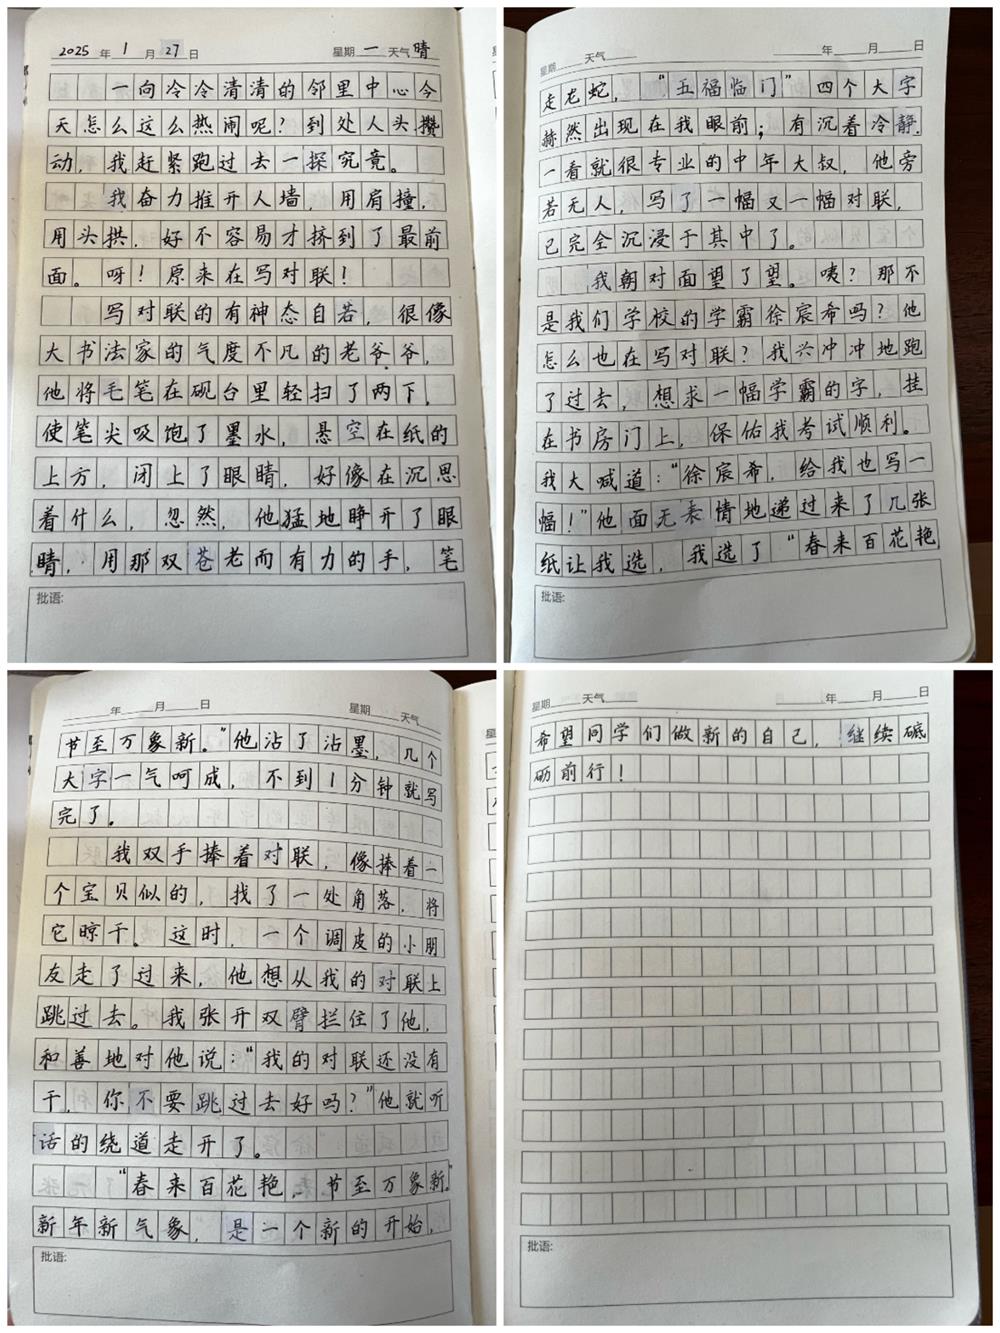 2025 年 1 月 27 日 星期 一 天气 晴
一向冷冷清清的邻里中心今
天怎么这么热闹呢？到处人头攒
动，我赶紧跑过去一探究竟。
我奋力推开人墙，用肩撞，
用头拱，好不容易才挤到了最前
面。呀！原来在写对联！
写对联的有神态自若，很像
大书法家的气度不凡的老爷爷，
他将毛笔在砚台里轻扫了两下，
使笔尖吸饱了墨水，悬空在纸的
上方，闭上了眼睛，好像在沉思
着什么，忽然，他猛地睁开了眼
睛，用那双苍老而有力的手，笔
批语:
星期 天气 年 月 日
走龙蛇，“五福临门”四个大字
赫然出现在我眼前；有沉着冷静，
一看就很专业的中年大叔，他旁
若无人，写了一幅又一幅对联，
已完全沉浸于其中了。
我朝对面望了望。咦？那不
是我们学校的学霸徐宸希吗？他
怎么也在写对联？我兴冲冲地跑
了过去，想求一幅学霸的字，挂
在书房门上，保佑我考试顺利。
我大喊道：“徐宸希，给我也写一
幅！”他面无表情地递过来了几张
纸让我选，我选了“春来百花艳
批语:
年 月 日 星期 天气
节至万象新。”他沾了沾墨，几个
大字一气呵成，不到1分钟就写
完了。
我双手捧着对联，像捧着一
个宝贝似的，找了一处角落，将
它晾干。这时，一个调皮的小朋
友走了过来，他想从我的对联上
跳过去。我张开双臂拦住了他，
和善地对他说：“我的对联还没有
干，你不要跳过去好吗？”他就听
话的绕道走开了。
“春来百花艳，节至万象新”
新年新气象，是一个新的开始，
批语:
星期 天气 年 月 日
希望同学们做新的自己，继续砥
砺前行！
批语: